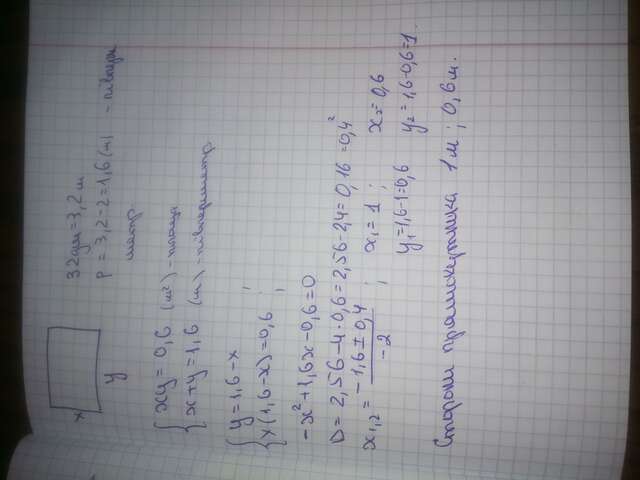 x
y
32 дм = 3,2 м
P = 3,2 : 2 = 1,6 (м) - півпери
метр.
{ xy = 0,6 (м²) - площа
{ x + y = 1,6 (м) - півпериметр.
{ y = 1,6 - x ;
{ x(1,6 - x) = 0,6 ;
-x² + 1,6x - 0,6 = 0
D = 2,56 - 4·0,6 = 2,56 - 2,4 = 0,16 = 0,4²
x₁,₂ = (-1,6 ± 0,4) / -2 ; x₁ = 1 ; x₂ = 0,6
y₁ = 1,6 - 1 = 0,6 y₂ = 1,6 - 0,6 = 1.
Сторони прямокутника 1 м ; 0,6 м.